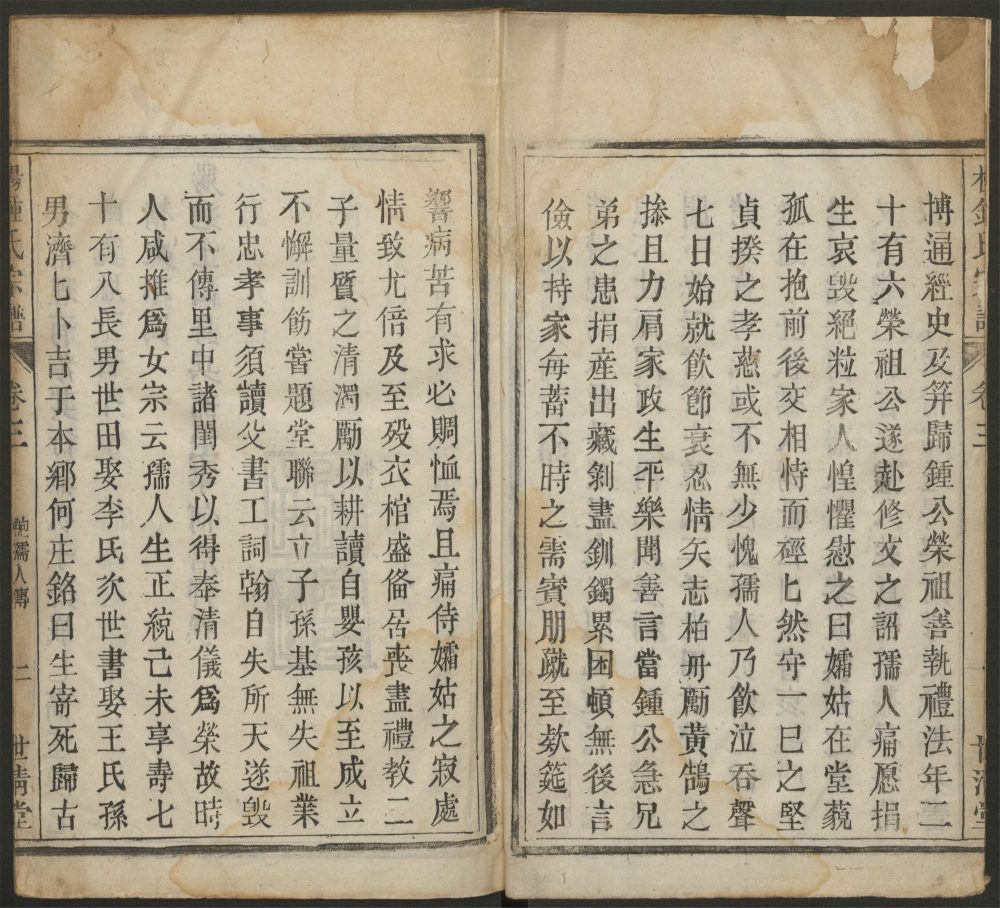 博通經史及笄歸鍾公榮祖善執禮法年二
十有六榮祖公遂赴修文之詔孺人痛愿捐
生哀毀絕粒家人惶懼慰之曰孀姑在堂藐
孤在抱前後交相恃而硜匕然守一巳之堅
貞揆之孝慈或不無少愧孺人乃飲泣吞聲
七日始就飲節哀忍情矢志柏舟勵黃鵠之
摻且力肩家政生平樂聞善言當鍾公急兄
弟之患捐産出藏剝盡釧鐲累困頓無後言
儉以持家每蓄不時之需賓朋蹴至欸筵如
響病苦有求必賙恤焉且痛侍孀姑之寂處
情致尤倍及至歿衣棺盛俻居喪盡禮教二
子量質之清濁勵以耕讀自嬰孩以至成立
不懈訓飭嘗題堂聯云立子孫基無失祖業
行忠孝事須讀父書工詞翰自失所天遂毀
而不傳里中諸閨秀以得奉清儀爲榮故時
人咸推爲女宗云孺人生正統己未享壽七
十有八長男世田娶李氏次世書娶王氏孫
男濟匕卜吉于本鄉何庄銘曰生寄死歸古
鍾氏宗譜
卷三
孺人傳
二
世清堂